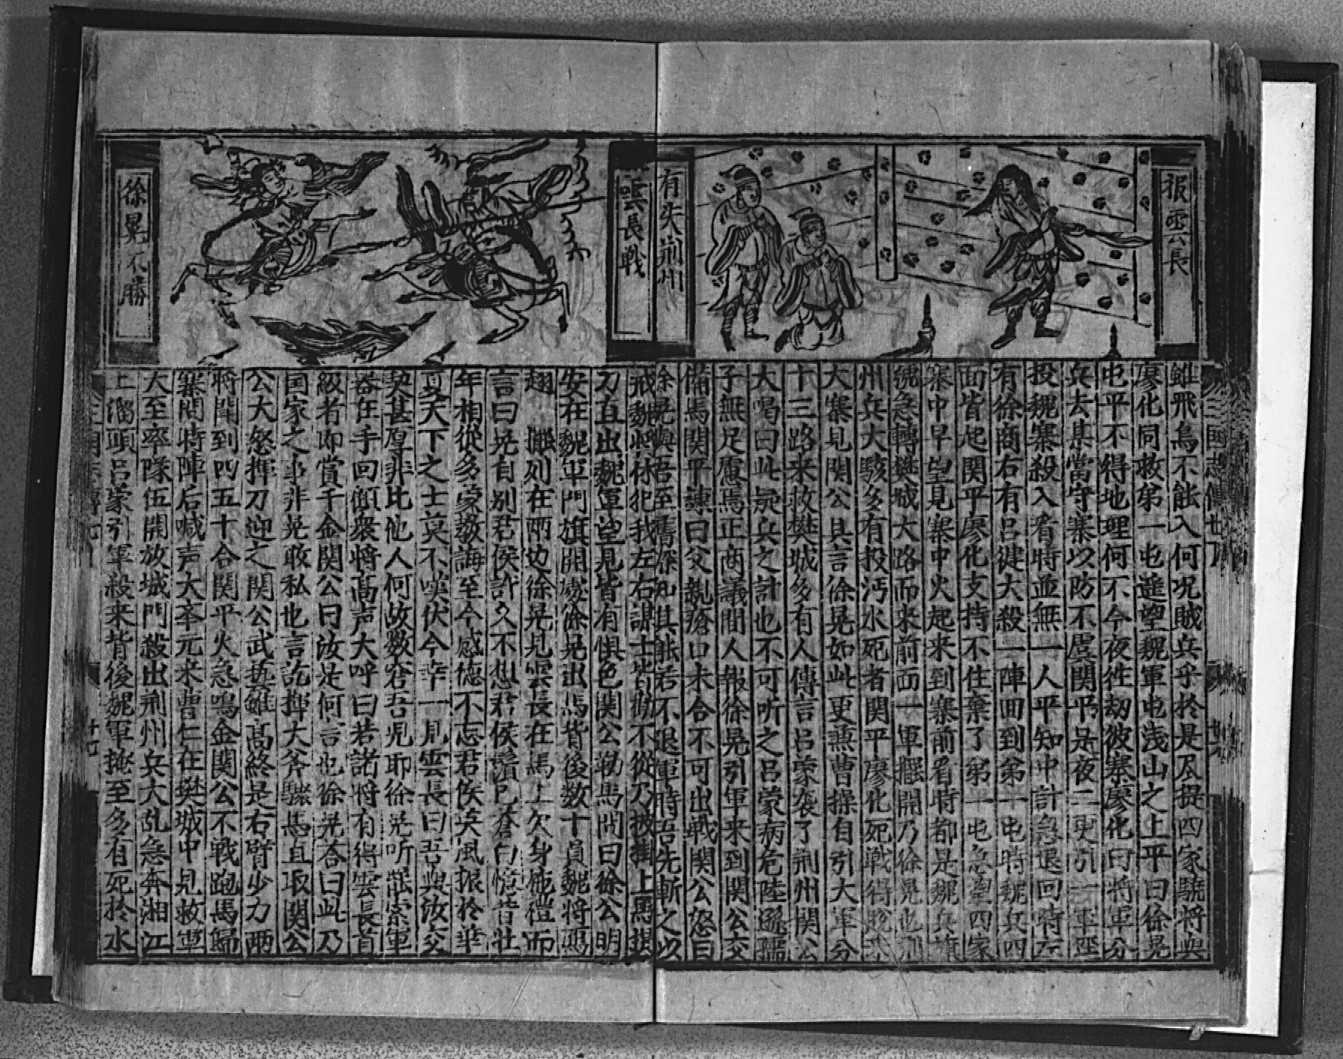 報雲長
有失荊州
雖飛鳥不能入何况賊兵乎於是尽提四冢驍将與
廖化同救第一屯遥望魏軍屯浅山之上平曰徐晃
屯平不得地理何不今夜往刼彼寨廖化曰将軍分
兵去某當守寨以防不虞関平是夜二更引一軍
投魏寨殺入看時並無一人平知中計急退回時左
有徐商右有呂徤大殺一陣回到第一屯時魏兵四
面皆起関平廖化支持不住棄了第一屯急望四冢
寨中早望見寨中火起来到寨前看時都是魏兵旗
號急轉樊城大路而来前面一軍擺開乃徐晃也
州兵大駭多有投沔水死者関平廖化死戰得脱
大寨見関公具言徐晃如此更兼曹操自引大軍分
十三路来救樊城多有人傳言呂蒙襲了荆州関公
大喝曰此疑兵之計也不可听之呂蒙病危陸遜孺
子無足慮焉正商議間人報徐晃引軍来到関公交
備馬関平諫曰父親瘡口未合不可出戰関公怒曰
徐晃與吾至舊深知其能若不退軍時吾先斬之以
雲長戰
徐晃不勝
戒魏将休犯我左右謀士皆勸不從乃披掛上馬提
刀直出魏軍望見皆有惧色関公勒馬問曰徐公明
安在魏軍門旗開處徐晃出馬背後数十員魏将鴈
翅 擺列在兩边徐晃見雲長在馬上欠身施礼而
言曰晃自别君侯許久不想君侯鬚已蒼白憶昔壮
年相從多蒙教誨至今感德不忘君侯矣風振於華
夏天下之士莫不嘆伏今幸一見雲長曰吾與汝交
契甚厚非比他人何故数窘吾児耶徐晃听罷索軍
器在手回顧衆将高声大呼曰若諸将有得雲長首
級者即賞千金関公曰汝是何言也徐晃答曰此乃
国家之事非晃敢私也言訖揮大斧驟馬直取関公
公大怒揮刀迎之関公武藝雖高終是右臂少力兩
将闘到四五十合関平火急鳴金関公不戰跑馬歸
寨問時陣后喊声大奉元来曹仁在樊城中見救軍
大至率隊伍開放城門殺出荆州兵大乱急奔湘江
上溜頭呂蒙引軍殺来背後魏軍掩至多有死於水